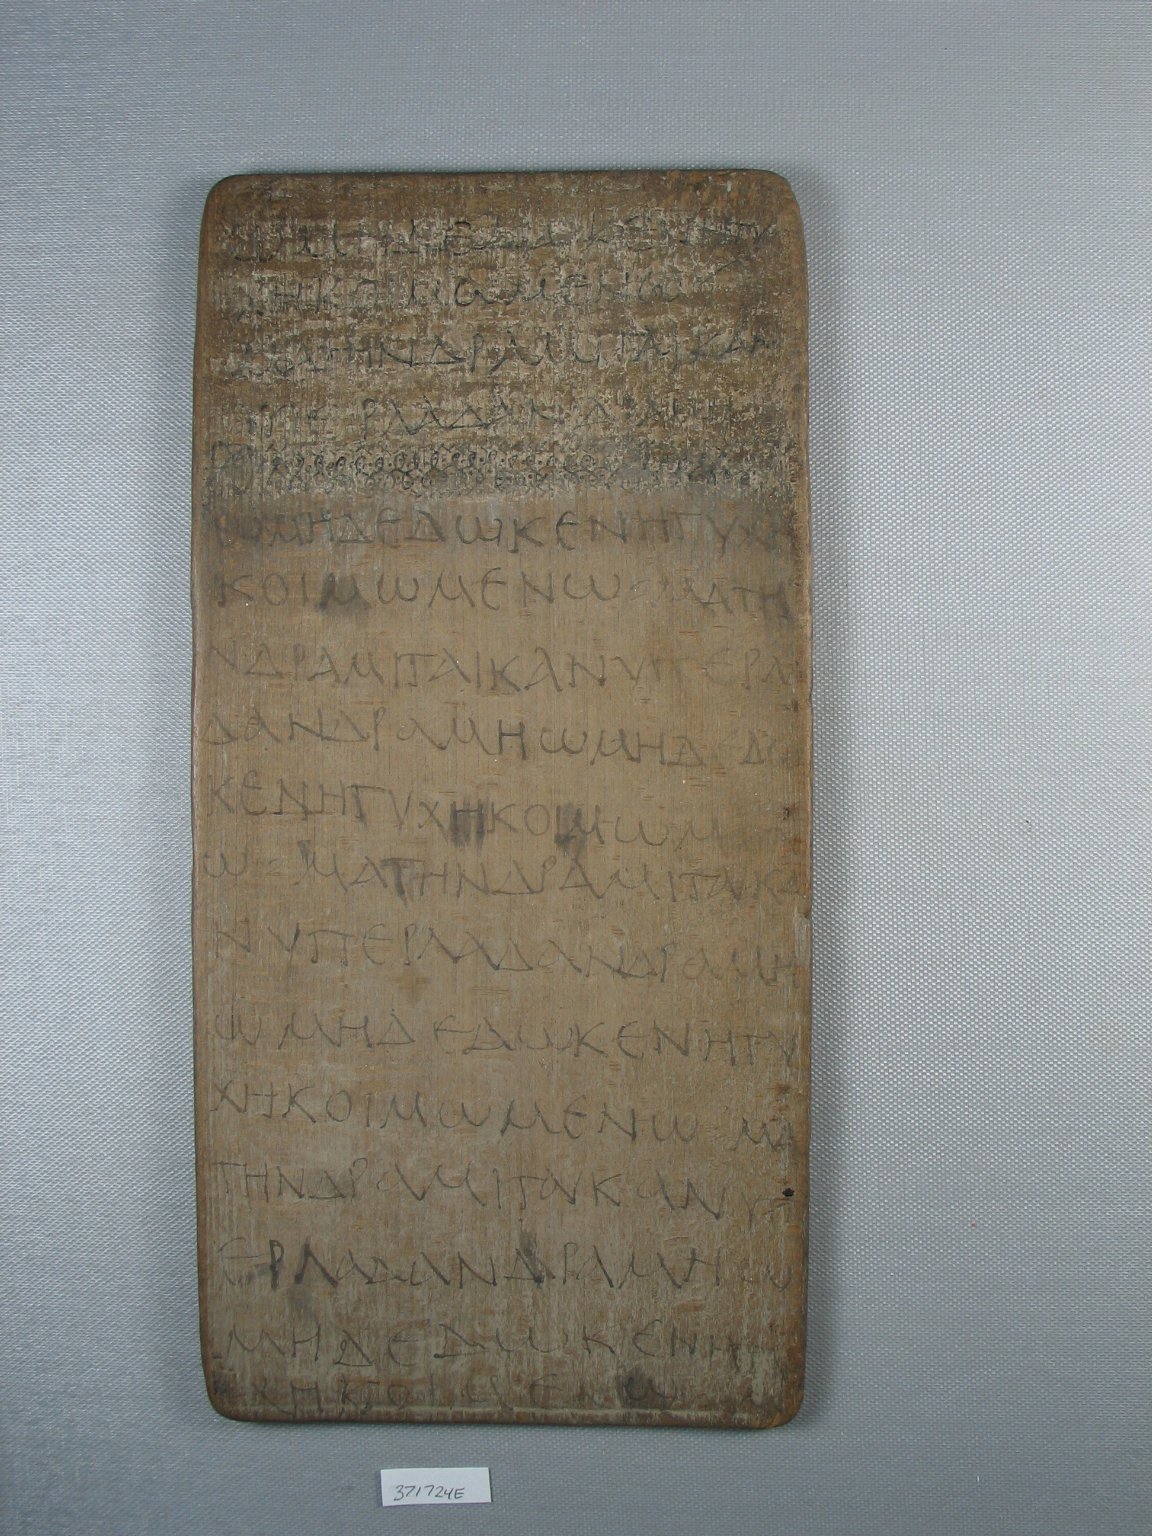 ωμηδεδωκενητυ
χηκοιμωμενω
ματηνδραμιταικαν
υπερλαδανδραμη
ωμηδεδωκενητυχη
κοιμωμενωματη
νδραμιταικανυπερλα
δανδραμηωμηδεδω
κενητυχηκοιμωμεν
ωματηνδραμιτακα
νυπερλαδανδραμη
ωμηδεδωκενητυ
χηκοιμωμενωμα
τηνδραμιτακανυπ
ερλαδανδραμηω
μηδεδωκενη
χηκ
371724E